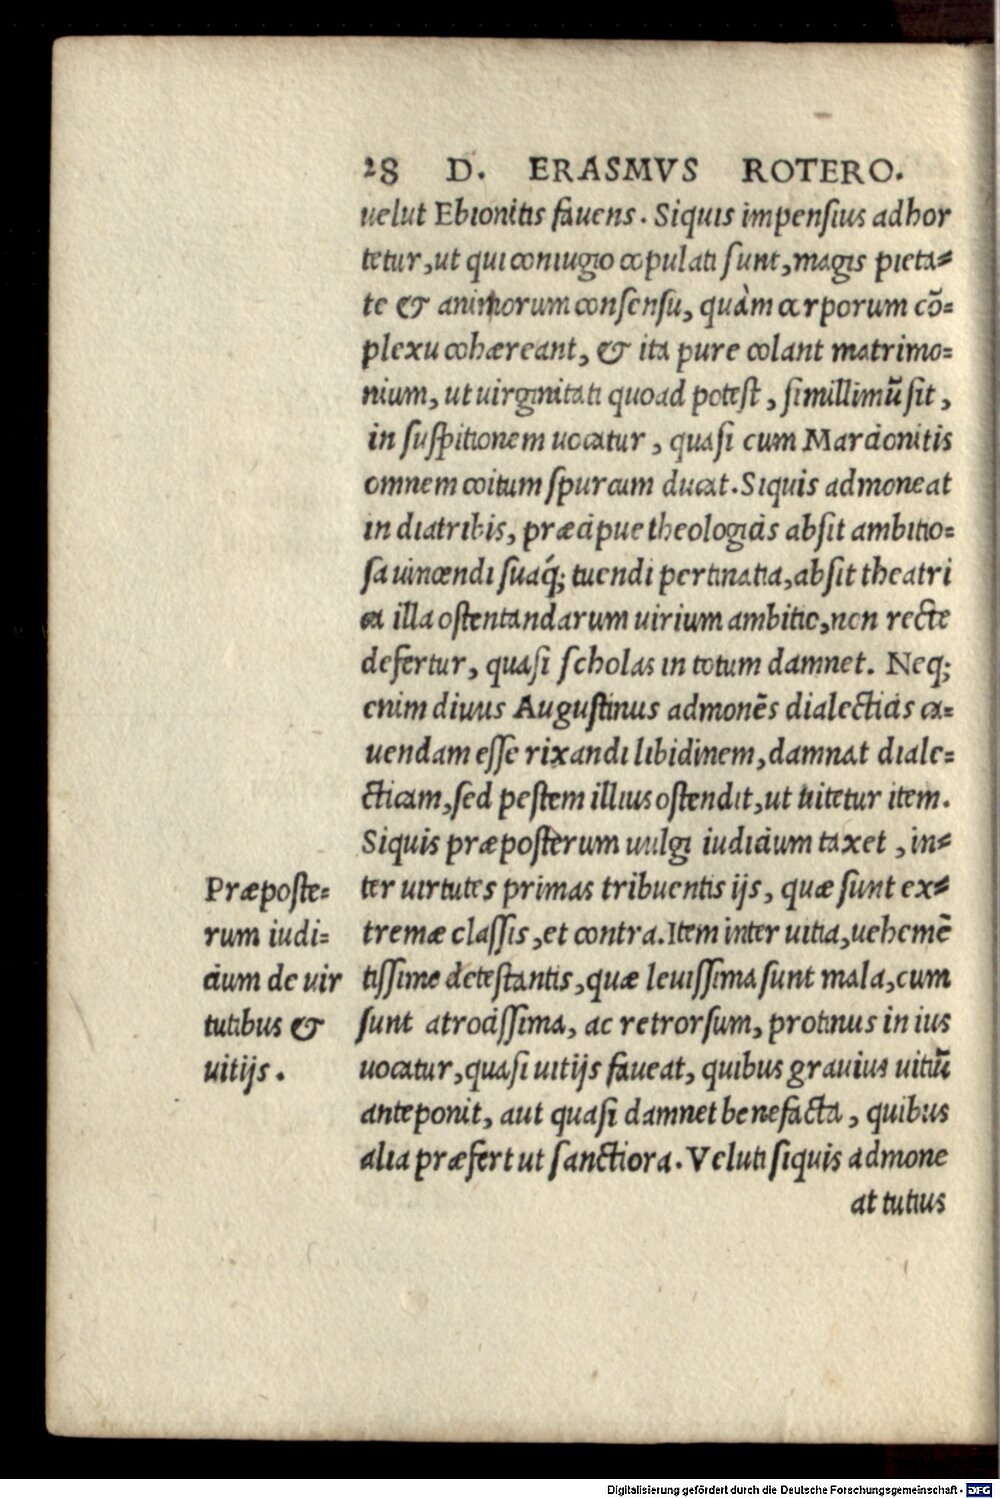 28 D. ERASMVS ROTERO.
uelut Ebionitis fauens. Siquis impensius adhor
tetur, ut qui coniugio copulati sunt, magis pieta-
te & animorum consensu, quàm corporum cō-
plexu cohæreant, & ita pure colant matrimo-
nium, ut uirginitati quoad potest, simillimū sit,
in suspitionem uocatur, quasi cum Marcionitis
omnem coitum spurcum ducat. Siquis admoneat
in diatribis, præcipue theologicis absit ambitio-
sa uincendi suaq́; tuendi pertinatia, absit theatri
ca illa ostentandarum uirium ambitio, non recte
defertur, quasi scholas in totum damnet. Neq;
enim diuus Augustinus admonēs dialecticis ca-
uendam esse rixandi libidinem, damnat diale-
cticam, sed pestem illius ostendit, ut uitetur item.
Siquis præposterum uulgi iudicium taxet, in-
ter uirtutes primas tribuentis ijs, quæ sunt ex-
tremæ classis, et contra. Item inter uitia, uehemē
tissime detestantis, quæ leuissima sunt mala, cum
sunt atrocissima, ac retrorsum, protinus in ius
uocatur, quasi uitijs faueat, quibus grauius uitiū
anteponit, aut quasi damnet benefacta, quibus
alia præfert ut sanctiora. Veluti siquis admone
at tutius
Præposte-
rum iudi-
cium de uir
tutibus &
uitijs.
Digitalisierung gefördert durch die Deutsche Forschungsgemeinschaft - DFG